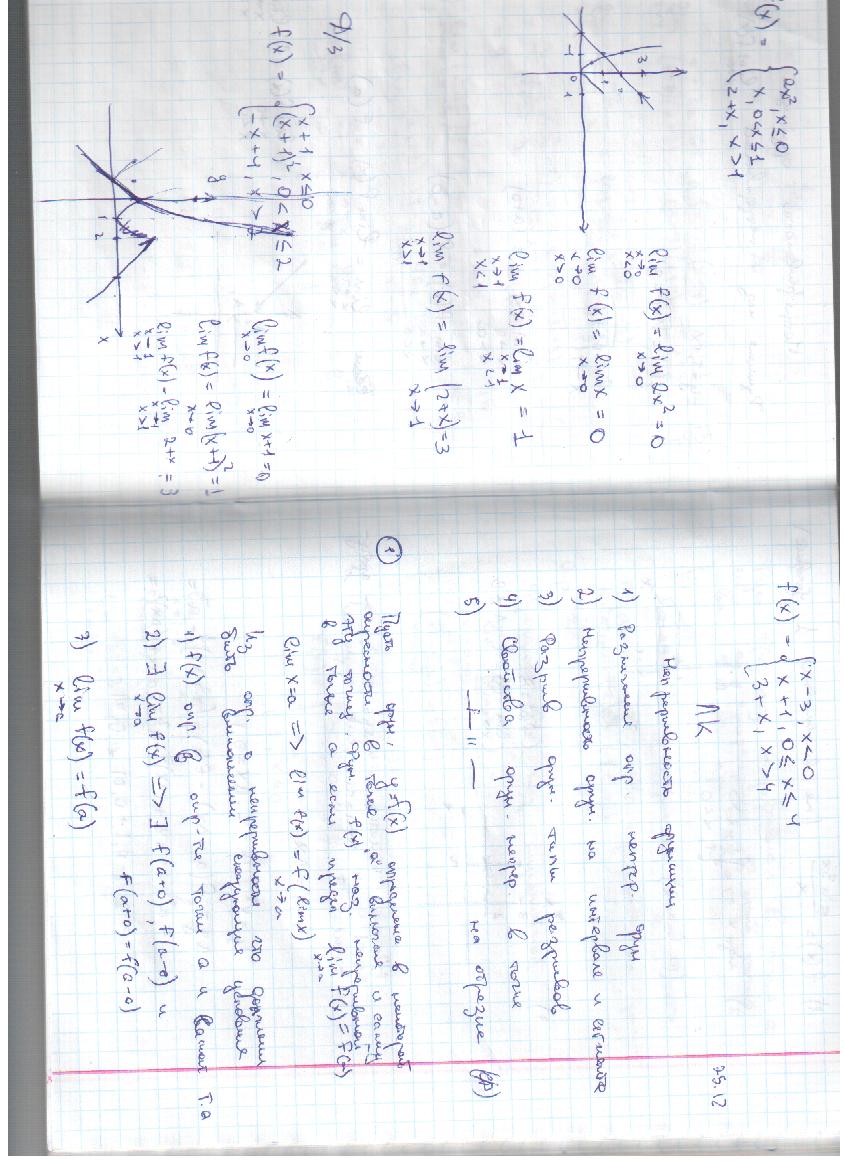 f(x) = { 2x², x ≤ 0
x, 0 < x ≤ 1
2+x, x > 1
lim f(x) = lim 2x² = 0
x→0 x→0
x<0
lim f(x) = lim x = 0
x→0 x→0
x>0
lim f(x) = lim x = 1
x→1 x→1
x<1 x<1
lim f(x) = lim (2+x) = 3
x→1 x→1
x>1
Д/з
f(x) = { x+1, x ≤ 0
(x+1)², 0 < x ≤ 2
-x+4, x > 2
lim f(x) = lim x+1 = 0
x→0 x→0
lim f(x) = lim (x+1)² = 1
x→0
lim f(x) - lim 2+x = 3
x→1 x→1
x>1 x>1
f(x) = { x-3, x < 0
x+1, 0 ≤ x ≤ 4
3+x, x > 4
25.12
ЛК
Непрерывность функции
1) Различные опр. непрер. функ
2) Непрерывность функ. на интервале и сегменте
3) Разрыв функ. типы разрывов
4) Свойства функ. непрер. в точке
5) —//— на отрезке
① Пусть функ. y=f(x) определена в некоторой
окрестности в точке "a" включая и саму
эту точку. функ. f(x) наз. непрерывной
в точке a если предел lim f(x) = f(a)
x→a
lim x=a => lim f(x) = f(lim x)
x→a
Из опр. о непрерывности это должны
быть выполнены следующие условия
1) f(x) опр. в окр-ти точки a и в самой т. a
2) ∃ lim f(x) => ∃ f(a+0), f(a-0) и
x→a
f(a+0) = f(a-0)
3) lim f(x) = f(a)
x→a